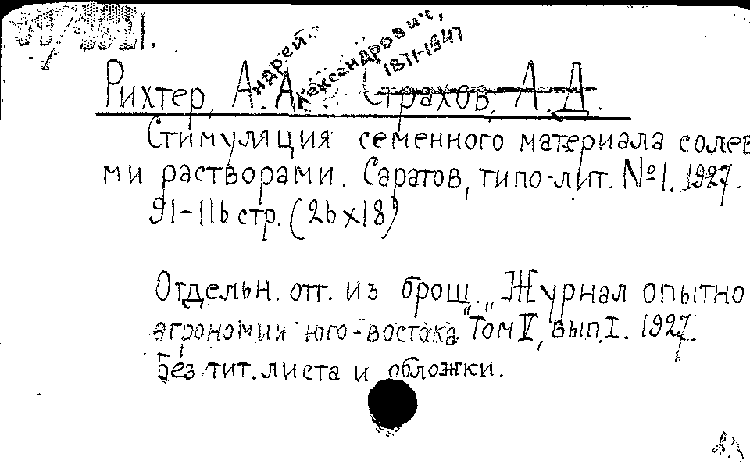 Андрей Александрович, 1871-1947
Рихтер, А. А. и Страхов, А. Д.
Стимуляция семенного материала солев
ми растворами. Саратов, типо-лит. №1. 1927.
91-116 стр. (26х18)
Отдельн. отт. из брош. „Журнал опытно
агрономия юго-востока" Том V, вып. I. 1927.
Без тит. листа и обложки.